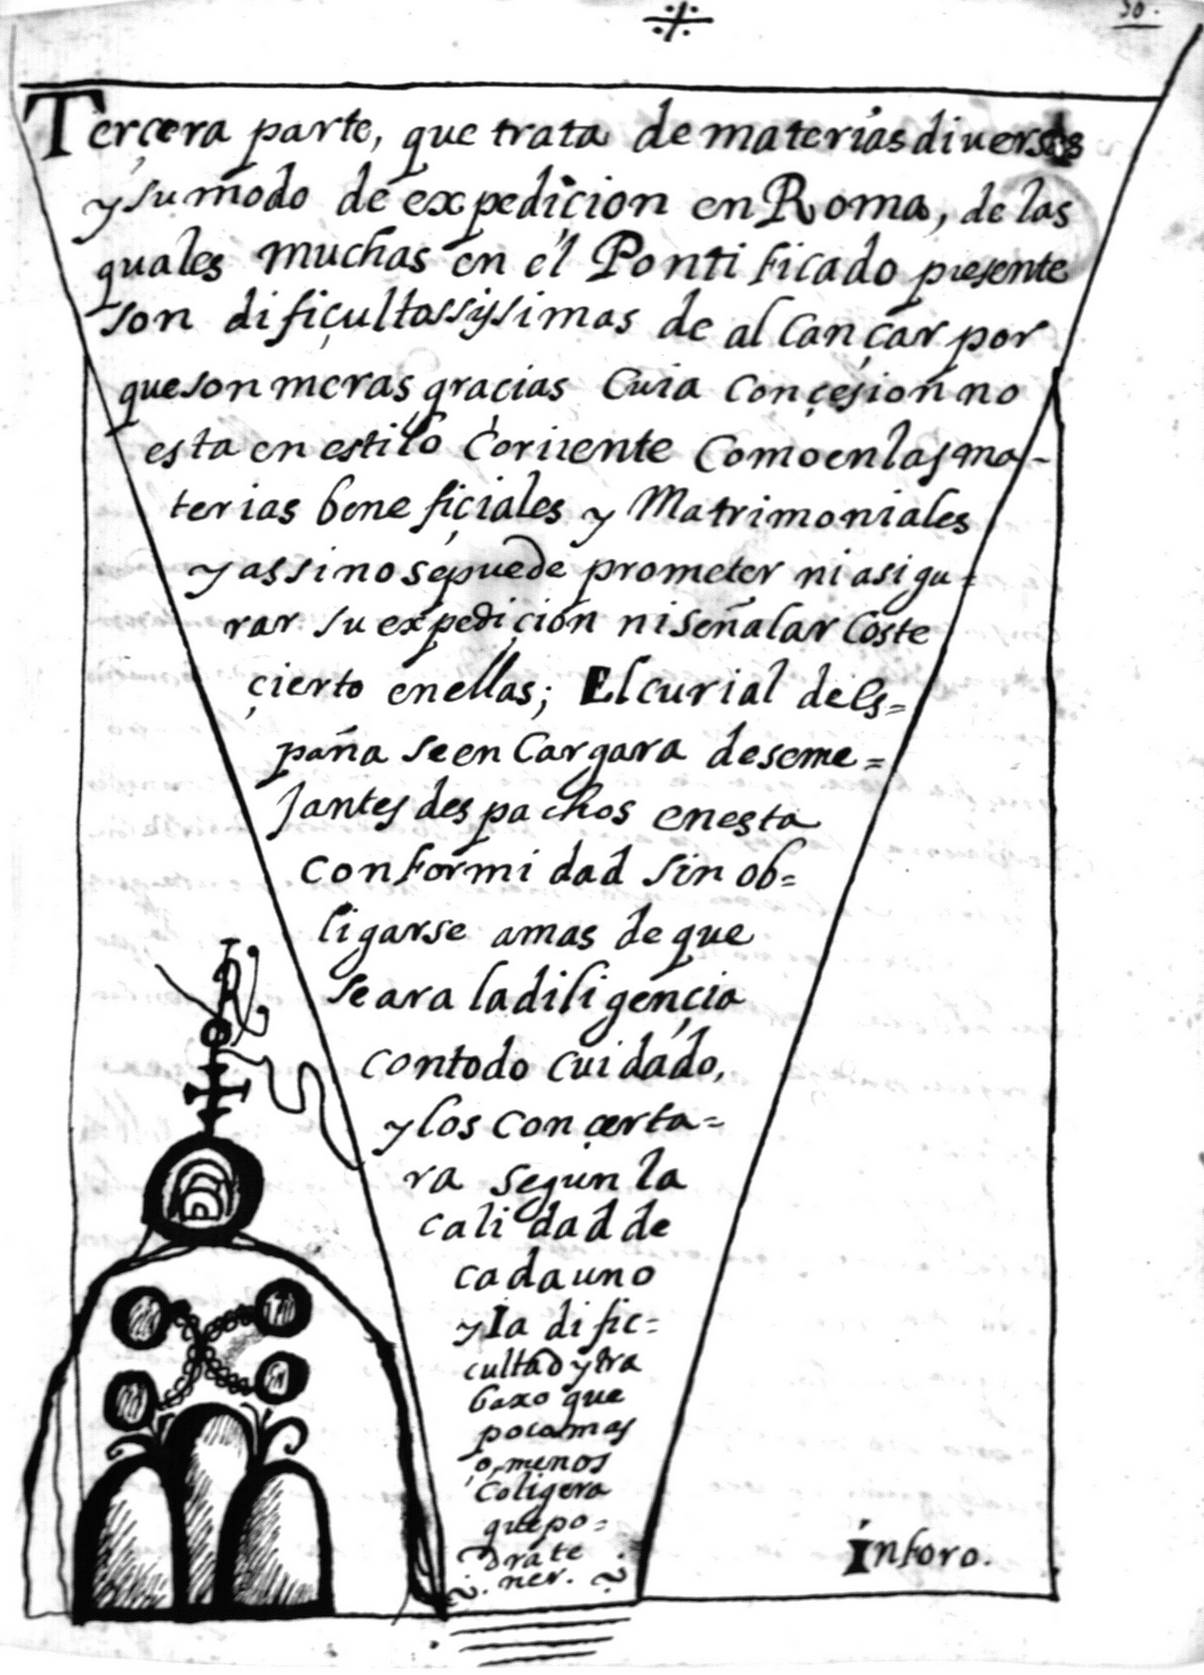 50.
Tercera parte, que trata de materias diversas
y su modo de expedicion en Roma, de las
quales muchas en el Pontificado presente
son dificultossissimas de alcançar por
que son meras gracias Cuia Conçesion no
esta en estilo Corriente Como en las ma-
terias beneficiales y Matrimoniales
y assi no se puede prometer ni asigu=
rar su expediçion ni señalar Coste
çierto en ellas; El curial de Es=
paña se en Cargara de seme=
jantes despachos en esta
conformidad sin ob=
ligarse a mas de que
se ara la diligençia
con todo cuidado,
y los Conçerta=
ra segun la
calidad de
cada uno
y la dific=
cultad y tra
baxo que
poco mas
o, menos
Coligera
que po=
dra te
ner.
Inforo.